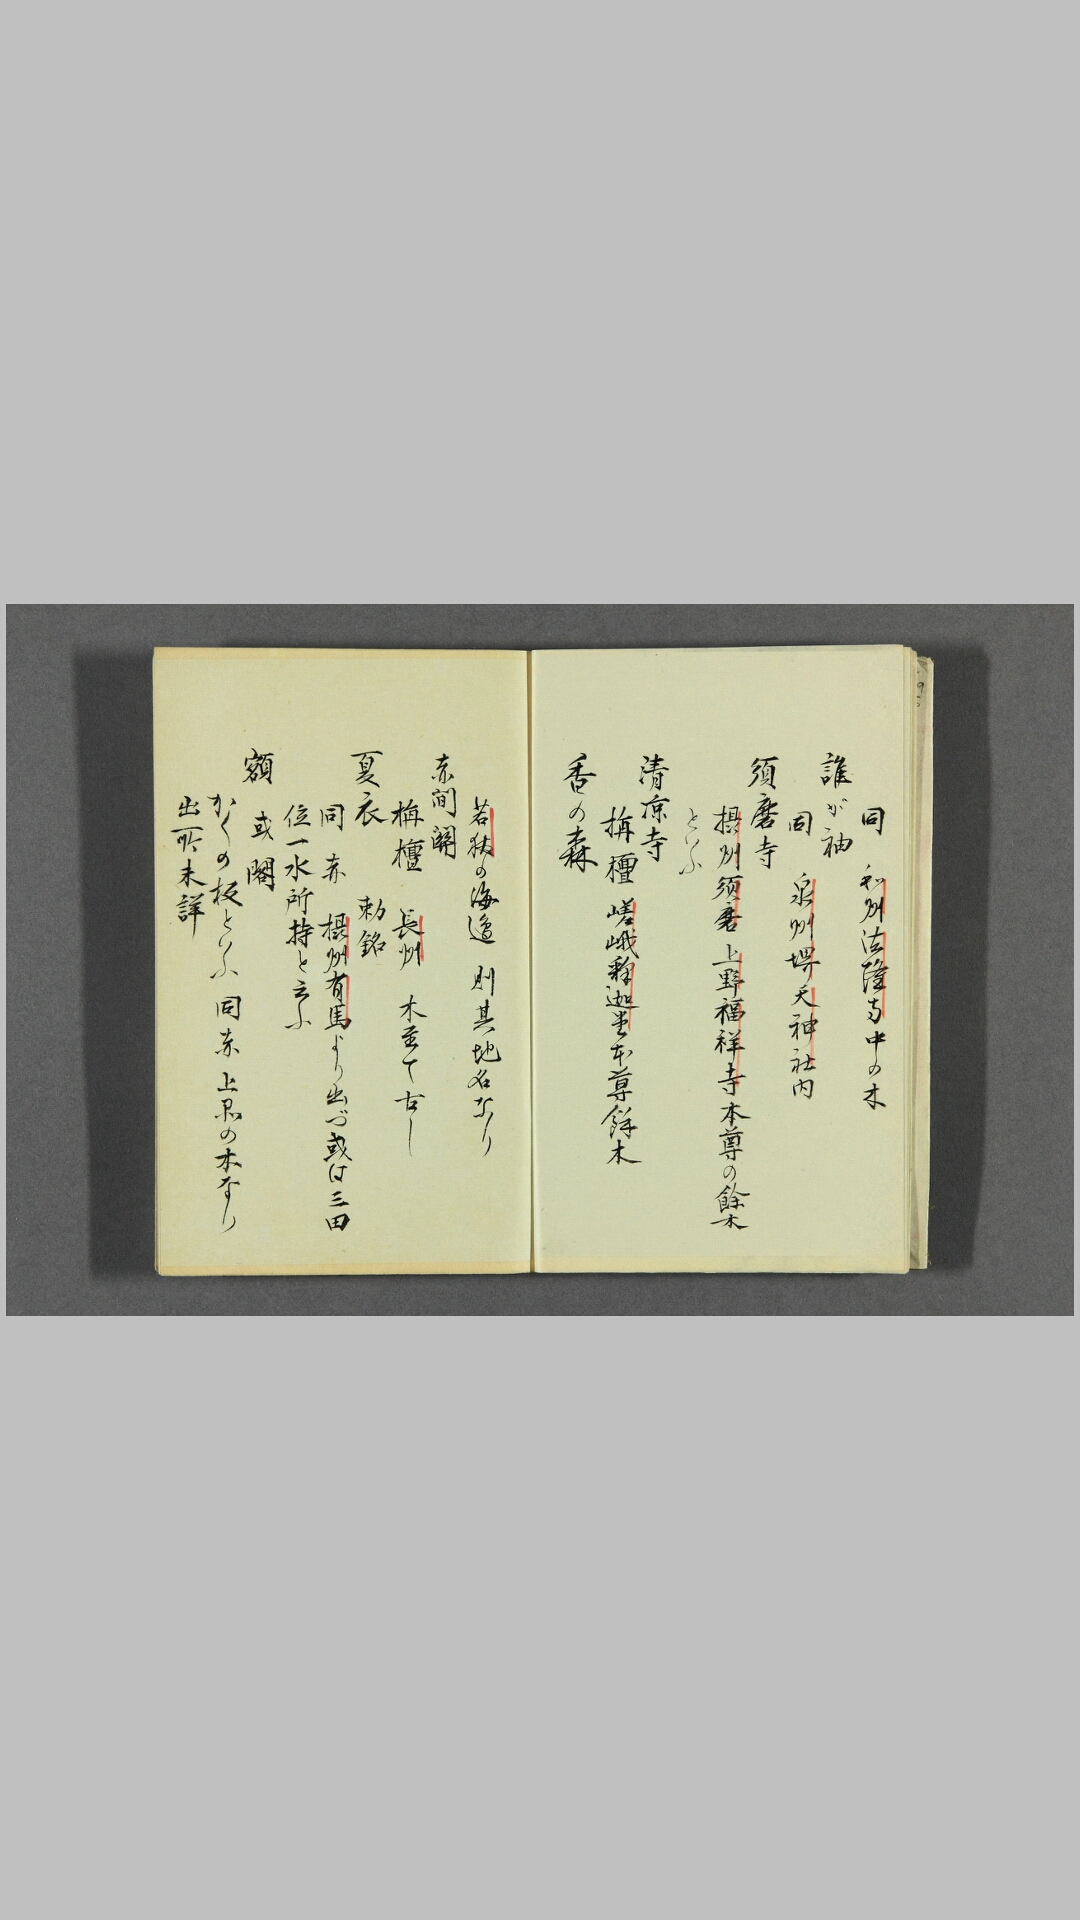 同 和州法隆寺中の木
誰が袖
同 泉州堺天神社内
須磨寺
摂州須磨上野福祥寺本尊の餘木
といふ
清凉寺
栴檀 嵯峨釈迦堂本尊餘木
香の森
若狭の海邉 則其地名なり
赤間關
栴檀 長州 木至て古し
夏衣 勅銘
同 赤 摂州有馬より出づ或は三田
位一水所持と云ふ
額
或 閣
かくの板といふ 同赤 上品の木なり
出所未詳